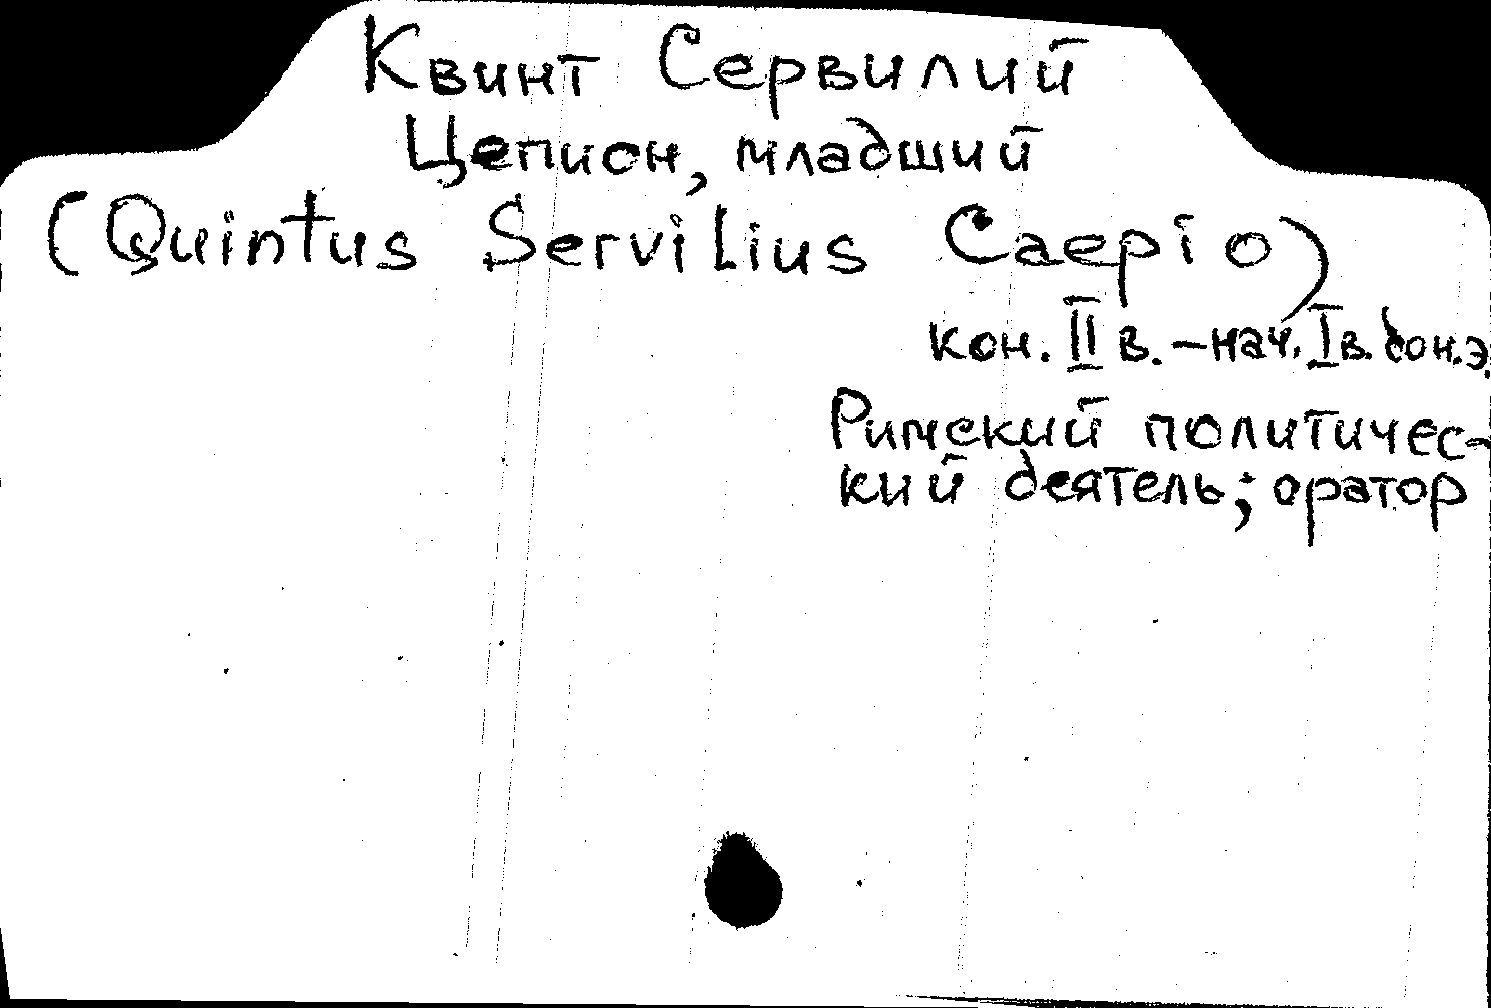 Квинт Сервилий
Цепион, младший
(Quintus Servilius Caepio)
кон. II в. – нач. I в. до н.э.
Римский политичес-
кий деятель; оратор